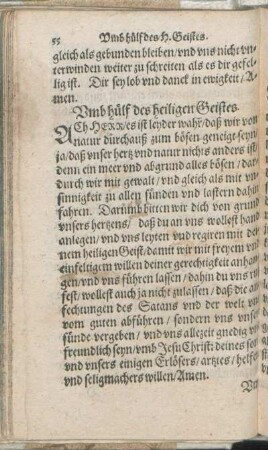 55 Vmb hülf des H. Geistes.
gleich als gebunden bleiben/vnd vns nicht vn
terwinden weiter zu schreiten als es dir gefel
lig ist. Dir sey lob vnd danck in ewigkeit/A
men.
Vmb hülf des heiligen Geistes.
ACh HERR/es ist leyder wahr/daß wir von
natur durchauß zum bösen geneigt seyn/
ja/daß vnser hertz vnd natur nichts anders ist
denn ein meer vnd abgrund alles bösen/ da
durch wir mit gewalt/ vnd gleich als mit vn
sinnigkeit zu allen sünden vnd lastern dahin
fahren. Darumb bitten wir dich von grund
vnsers hertzens/ daß du an vns wollest hand
anlegen/vnd vns leyten vnd regiren mit dei
nem heiligen Geist/damit wir mit freyem vn
einfeltigem willen deiner gerechtigkeit anhan
gen/vnd vns führen lassen/dahin du vns ru
fest/wollest auch ja nicht zulassen/ daß die an
fechtungen des Satans vnd der welt vn
vom guten abführen/ sondern vns vnser
sünde vergeben/ vnd vns allezeit gnedig vn
freundlich seyn/vmb Jesu Christi deines so
vnd vnsers einigen Erlösers/artztes/helfe
vnd seligmachers willen/Amen.
Vm